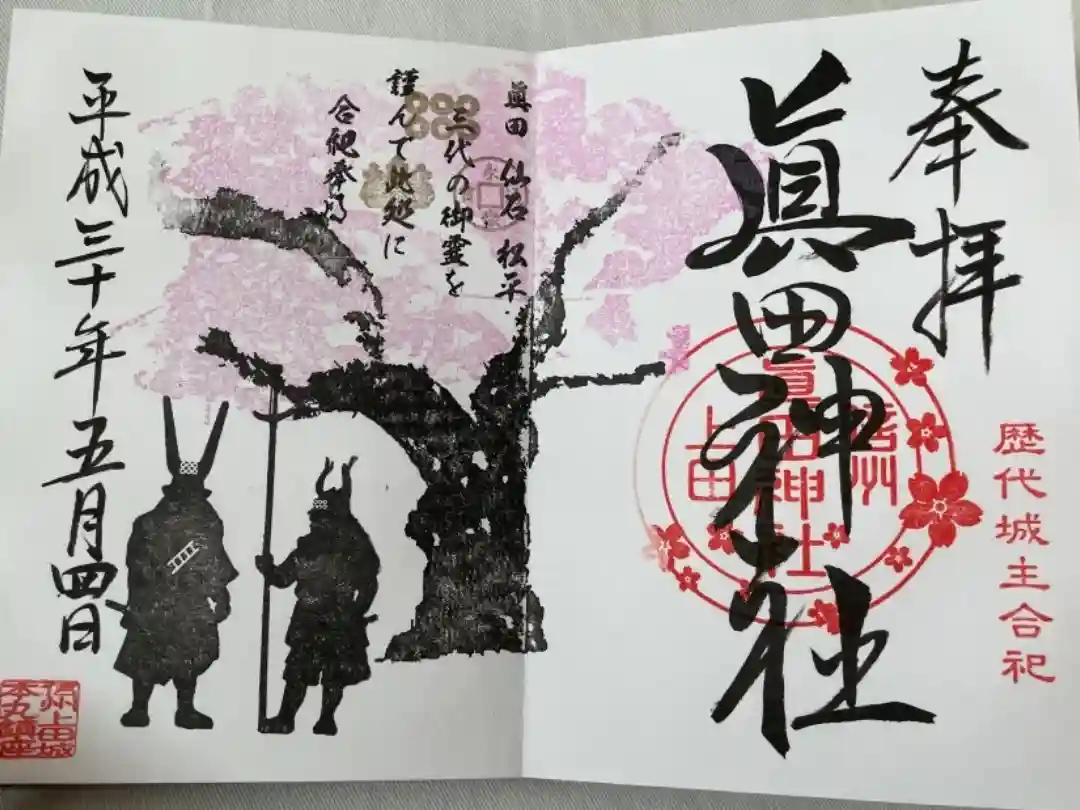 奉拝
眞田神社
歴代城主合祀
信州
眞田神社
上田
眞田 仙石 松平
三代の御霊を
謹んで此処に
合祀奉る
平成三十年五月四日
上田城
本丸鎮座